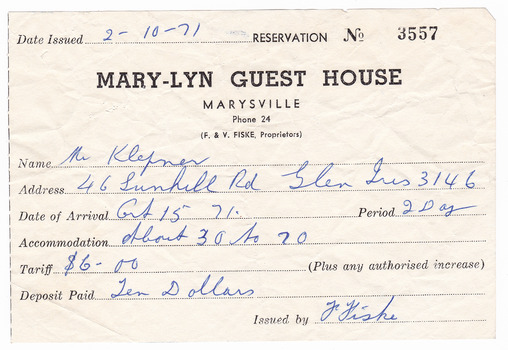 Date Issued 2-10-71 RESERVATION No 3557
MARY-LYN GUEST HOUSE
MARYSVILLE
Phone 24
(F. & V. FISKE, Proprietors)
Name Mr Klepner
Address 46 Sunhill Rd Glen Iris 3146
Date of Arrival Oct 15 71. Period 2 Day
Accommodation About 30 to 70
Tariff $6-00 (Plus any authorised increase)
Deposit Paid Ten Dollars
Issued by F Fiske